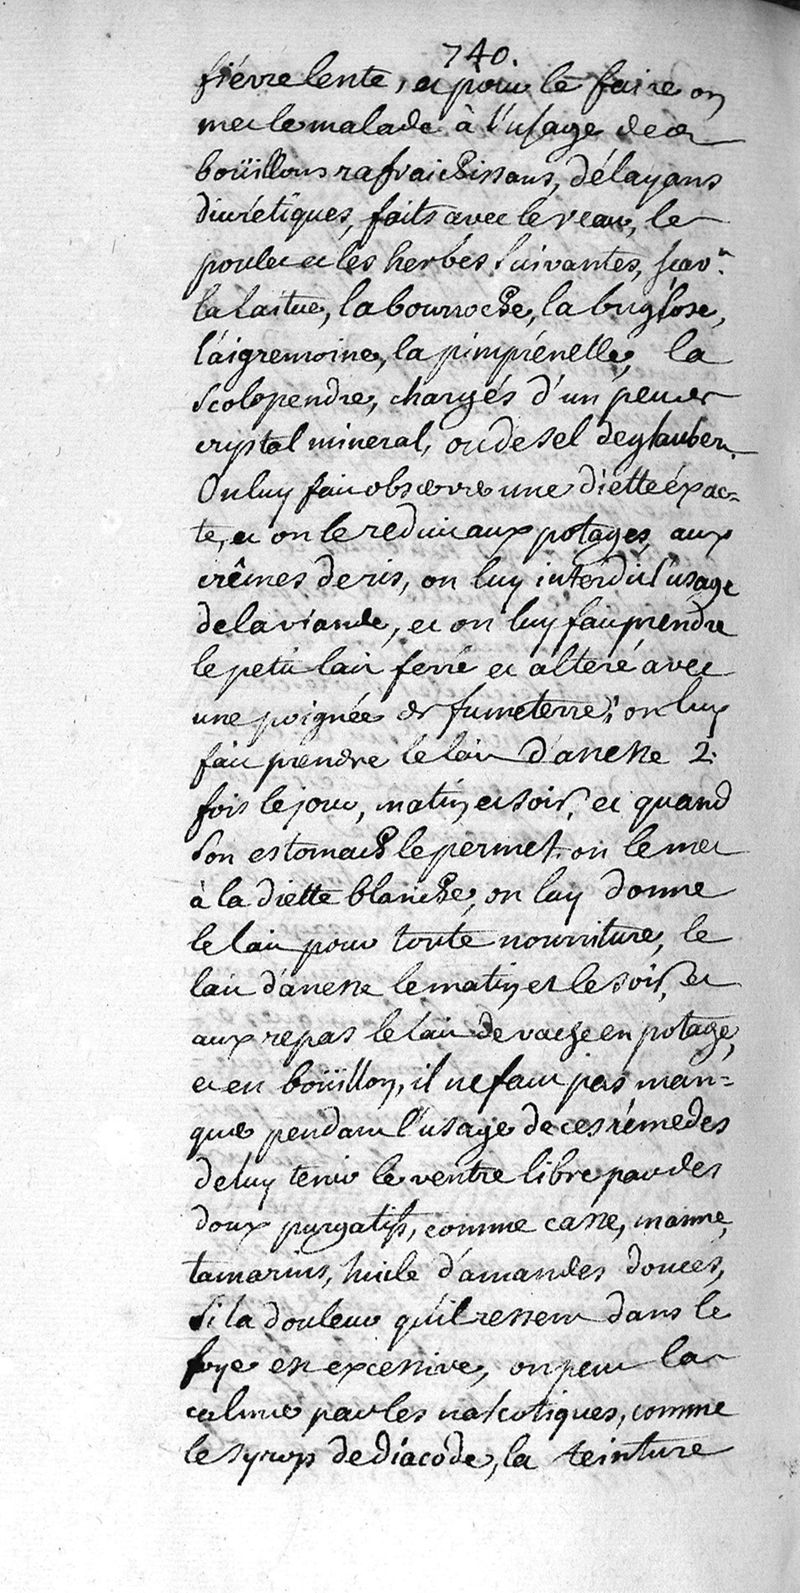 740.
fiévre lente, et pour le faire on
met le malade à l'usage de
boüillons rafraichissans, délayans
diurétiques, faits avec le veau, le
poulet et les herbes suivantes, sçavr.
la laitue, la bourroche, la buglose,
l'aigremoine, la pimprénelle, la
scolopendre, chargés d'un peu de
crystal mineral, ou de sel de glauber.
On luy fait observer une diette éxac=
te, et on le reduit aux potages, aux
crêmes de ris, on luy interdit l'usage
de la viande, et on luy fait prendre
le petit lait ferré et alteré avec
une poignée de fumeterre; on luy
fait prendre le lait d'anesse 2.
fois le jour, matin et soir, et quand
son estomach le permet. on le met
à la diette blanche, on luy donne
le lait pour toute nourriture, le
lait d'anesse le matin et le soir, et
aux repas le lait de vache en potage,
et en boüillon, il ne faut pas man=
quer pendant l'usage de ces rémedes
de luy tenir le ventre libre par des
doux purgatifs, comme casse, manne,
tamarins, huile d'amandes douces,
si la douleur qu'il ressent dans le
foye est excessive, on peut la
calmer par les narcotiques, comme
le syrop de diacode, la teinture